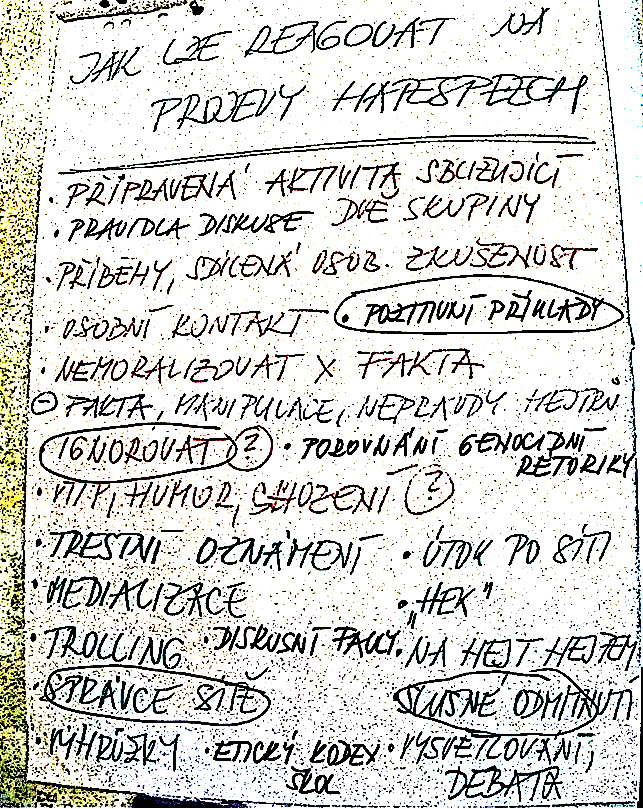 JAK LZE REAGOVAT NA
PROJEVY HATESPEECH
• PŘIPRAVENÁ AKTIVITA SBLIŽUJÍCÍ
• PRAVIDLA DISKUSE DVĚ SKUPINY
• PŘÍBĚHY, SDÍLENÁ OSOB. ZKUŠENOST
• OSOBNÍ KONTAKT • POZITIVNÍ PŘÍKLADY
• NEMORALIZOVAT X FAKTA
⊖ FAKTA, MANIPULACE, NEPRAVDY HEJTRŮ
IGNOROVAT ? • POROVNÁNÍ GENOCIDNÍ
RÉTORIKY
• VTIP, HUMOR, SHOZENÍ ?
• TRESTNÍ OZNÁMENÍ • ÚTOK PO SÍTI
• MEDIALIZACE • „HEK"
• TROLLING • DISKUSNÍ FAULY • NA HEJT HEJTEM
• SPRÁVCE SÍTĚ • SLUŠNÉ ODMÍTNUTÍ
• VÝHRŮŽKY • ETICKÝ KODEX • VYSVĚTLOVÁNÍ,
ŠKOL DEBATA